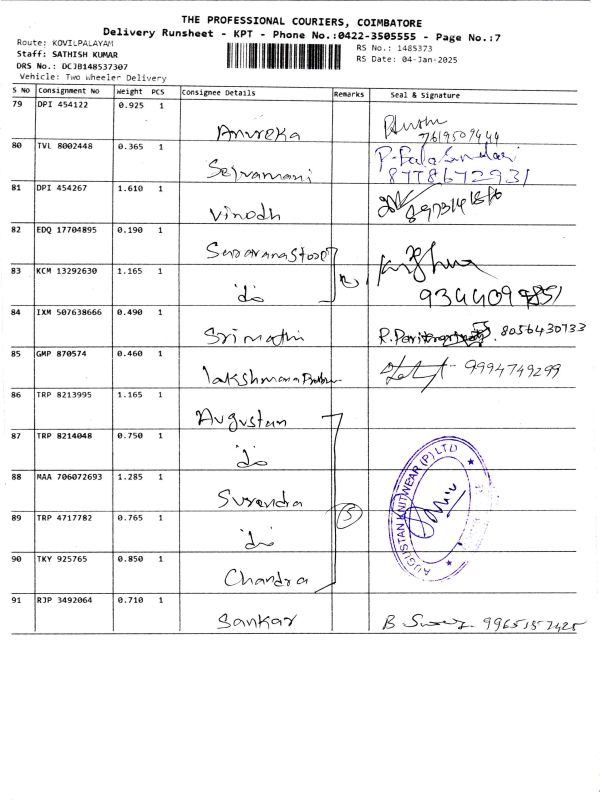 THE PROFESSIONAL COURIERS, COIMBATORE
Delivery Runsheet - KPT - Phone No.:0422-3505555 - Page No.:7
Route: KOVILPALAYAM
Staff: SATHISH KUMAR
DRS No.: DCJB148537307
Vehicle: Two Wheeler Delivery
RS No.: 1485373
RS Date: 04-Jan-2025
S No Consignment No Weight PCS Consignee Details Remarks Seal & Signature
79 DPI 454122 0.925 1
Anureka 7619509444
80 TVL 8002448 0.365 1
Selvamani P. Bala Sundari
8778672931
81 DPI 454267 1.610 1
Vinodh
82 EDQ 17704895 0.190 1
Saravanastore
83 KCM 13292630 1.165 1
do 2
84 IXM 507638666 0.490 1
Srimathi R. 8056430733
85 GMP 870574 0.460 1
lakshmana Prabu 9994749299
86 TRP 8213995 1.165 1
Augustan
87 TRP 8214048 0.750 1
do
88 MAA 706072693 1.285 1
Surendra
89 TRP 4717782 0.765 1
do 5
AUGUSTAN KNITWEAR (P) LTD
90 TKY 925765 0.850 1
Chandra
91 RJP 3492064 0.710 1
Sankar B